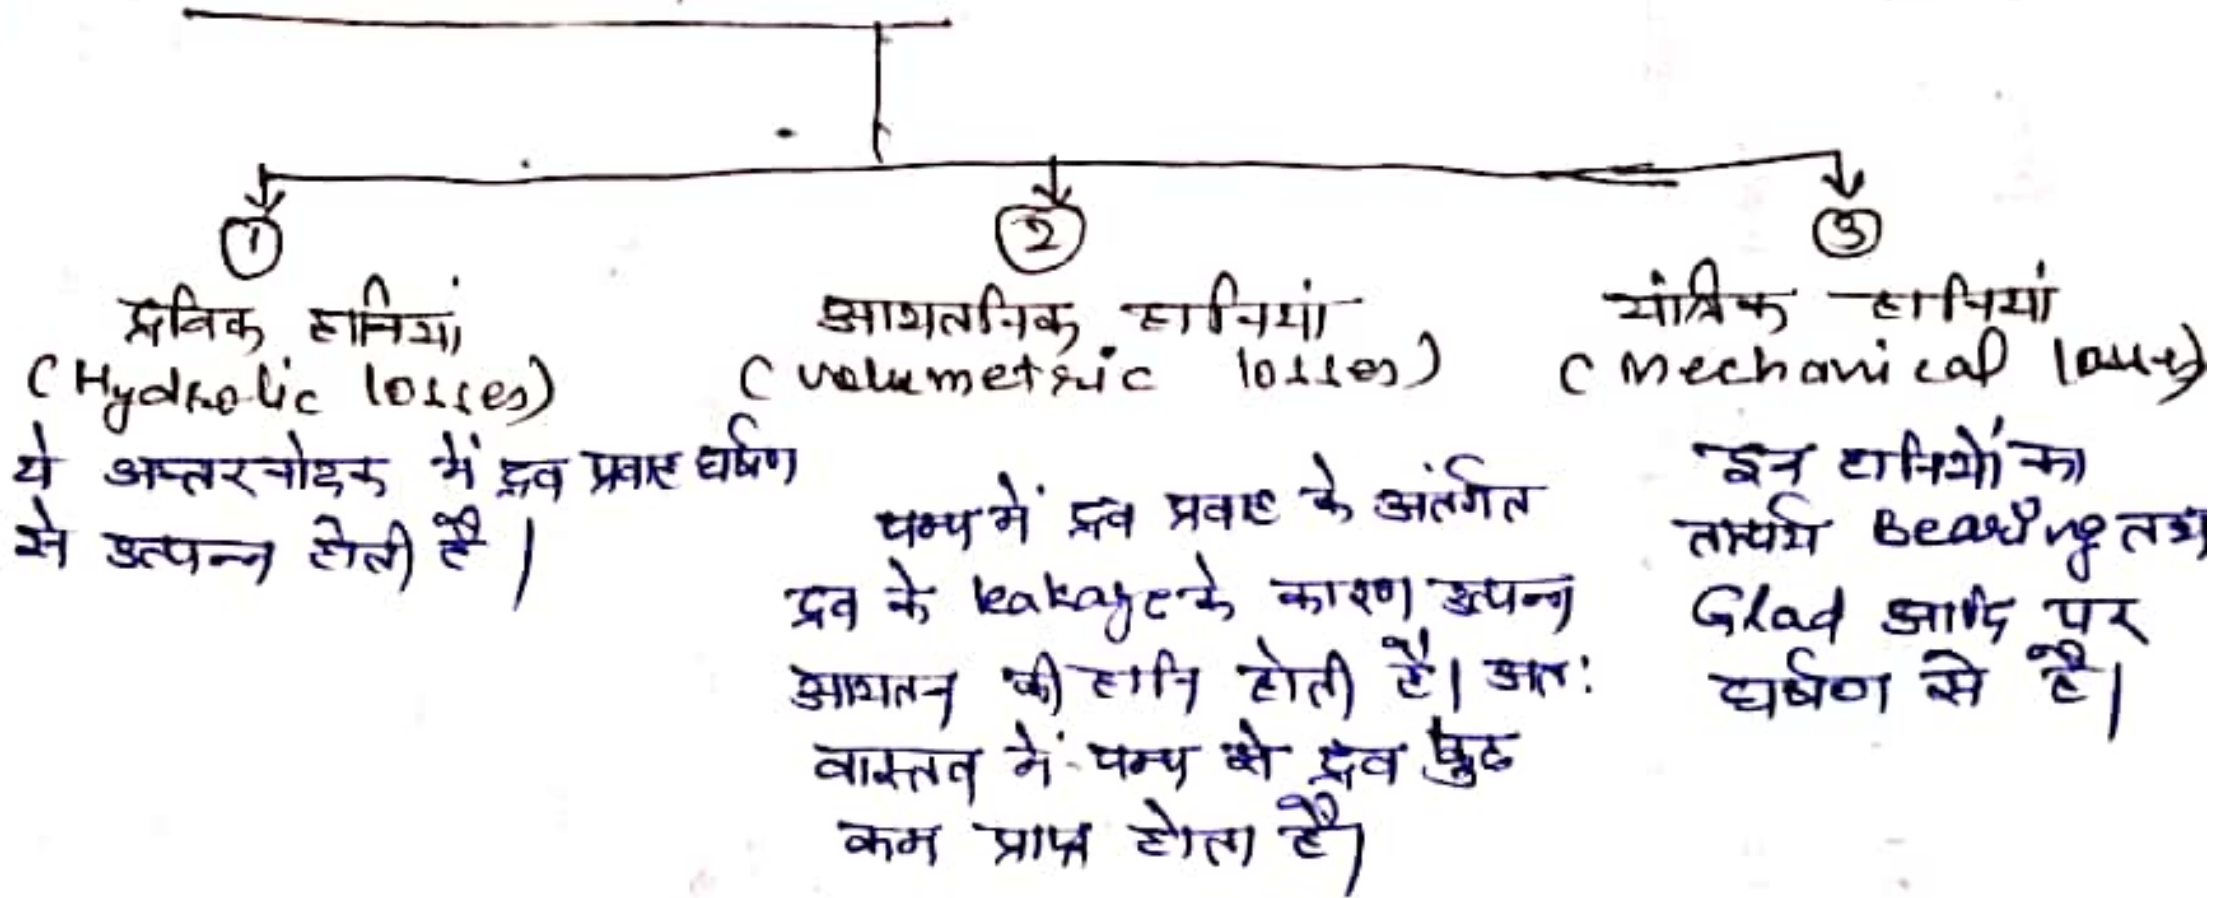 1
द्रविक हानियां
(Hydrolic losses)
ये अन्तरनोदक में द्रव प्रवाह घर्षण
से उत्पन्न होती है।
2
आयतनिक हानियां
(volumetric losses)
पम्प में द्रव प्रवाह के अंतर्गत
द्रव के leakage के कारण उत्पन्न
आयतन की हानि होती है। अतः
वास्तव में पम्प से द्रव कुछ
कम प्राप्त होता है।
3
यांत्रिक हानियां
(Mechanical losses)
इन हानियों का
तात्पर्य Bearing तथा
Glad आदि पर
घर्षण से है।